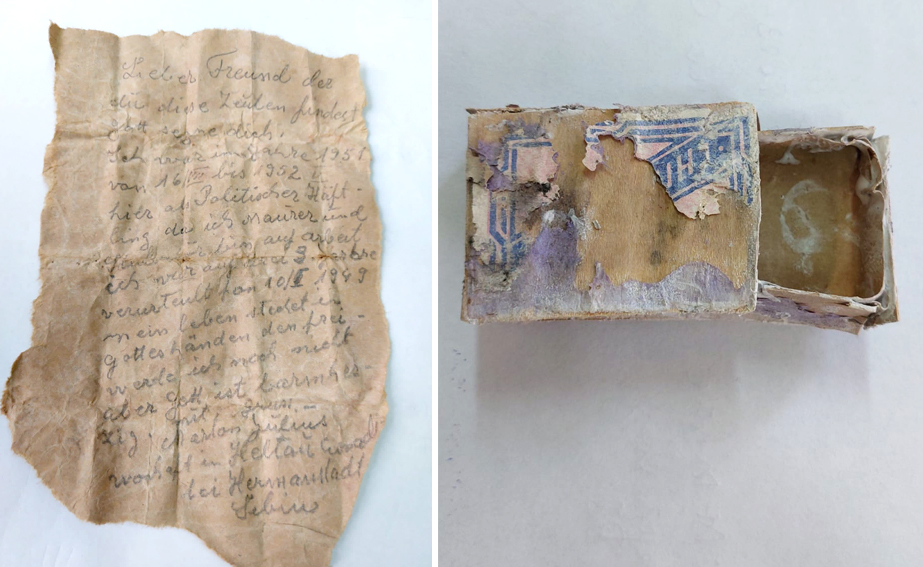 Lieber Freund der
du diese Zeilen findest
Gott segne dich,
Ich war im Jahre 1951
von 16 bis 1952
hier als Politischer Häft-
ling da ich Maurer und
bin auf arbeit
ich war auf 3
verurteilt von 10/I 1949
mein leben stehet in
gotteshänden den frei-
werde ich noch nicht
aber gott ist barmher-
zig mit gruss
Marton Julius
wohaft in Heltau
bei Hermannstadt
Sibiu